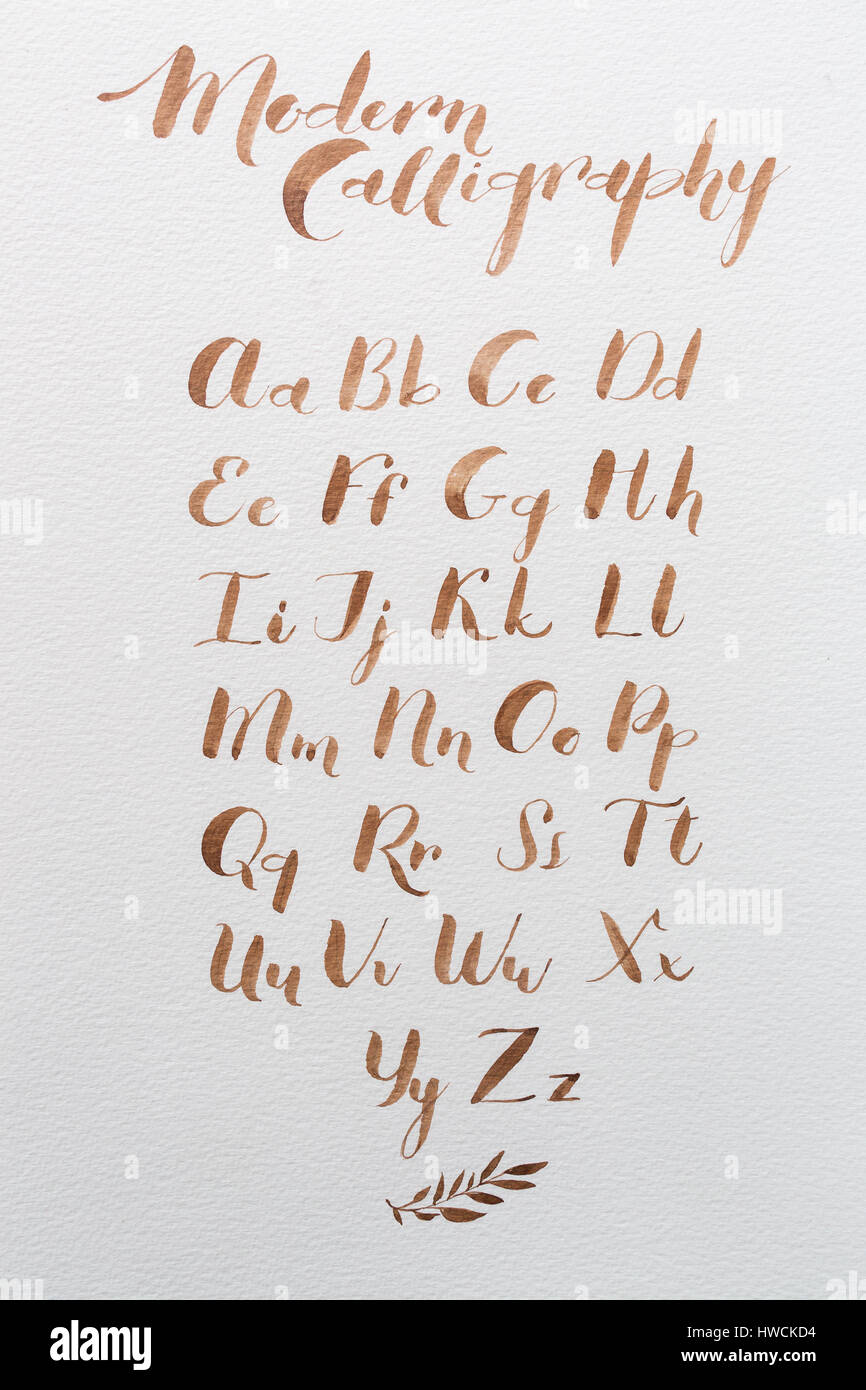 Modern
Calligraphy
Aa Bb Cc Dd
Ee Ff Gg Hh
Ii Jj Kk Ll
Mm Nn Oo Pp
Qq Rr Ss Tt
Uu Vv Ww Xx
Yy Zz
alamy
Image ID: HWCKD4
www.alamy.com